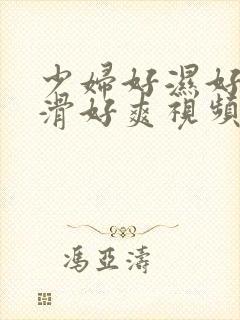 少婦好濕好
滑好爽視頻
馮亞濤